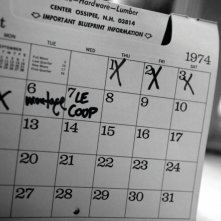 Hardware—Lumber
CENTER OSSIPEE, N.H. 03814
IMPORTANT BLUEPRINT INFORMATION
1974
THU FRI SAT
1 2 3
6 7 8 9 10
montage LE
COUP
13 14 15 16 17
20 21 22 23 24
27 28 29 30 31